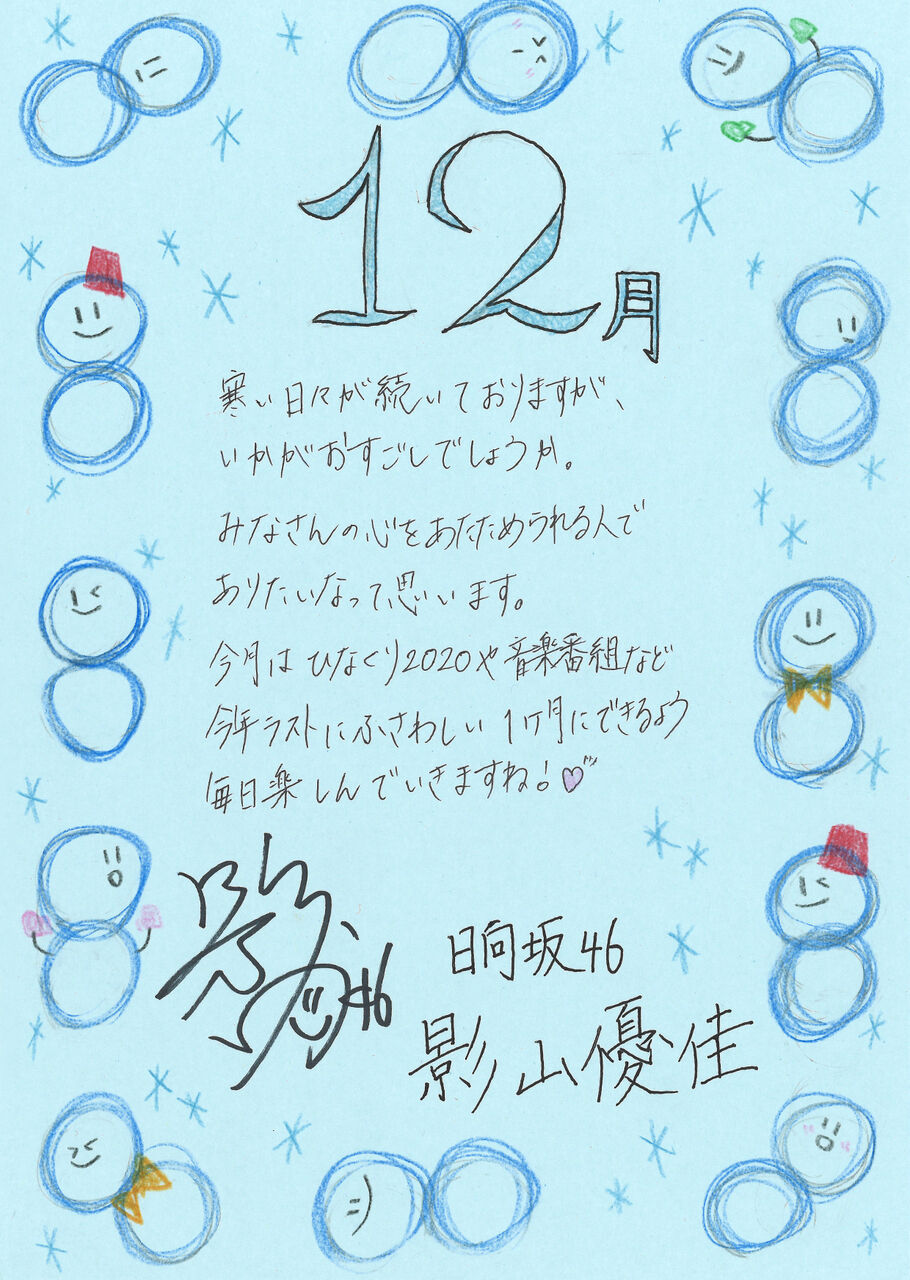 12月
寒い日々が続いておりますが、
いかがおすごしでしょうか。
みなさんの心をあたためられる人で
ありたいなって思います。
今月はひなくり2020や音楽番組など
今年ラストにふさわしい1ヶ月にできるよう
毎日楽しんでいきますね！
46
日向坂46
影山優佳